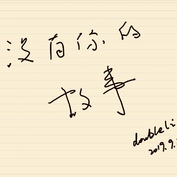 没有你的
故事
doubleLi
2019.9.